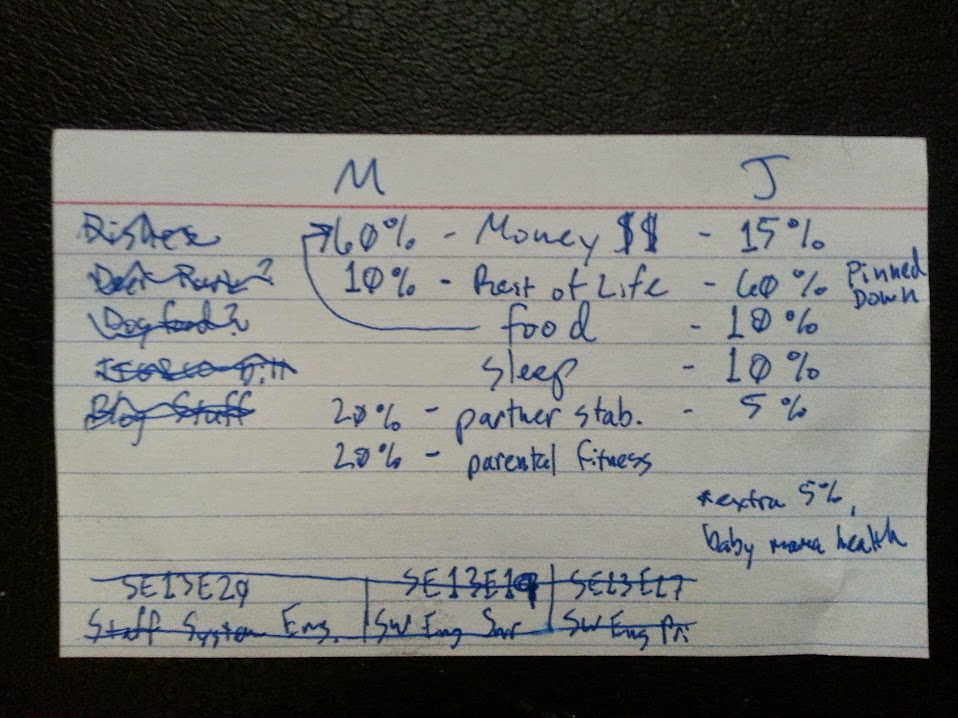 M J
Dishes 60% - Money $$ - 15%
Deer Park? 10% - Rest of Life - 60% Pinned Down
Dog food? food - 10%
sleep - 10%
Blog Stuff 20% - partner stab. - 5%
20% - parental fitness
*extra 5%,
baby mama health
SE13E20 SE13E19 SE13E17
Staff System Eng. SW Eng Snr SW Eng Pri